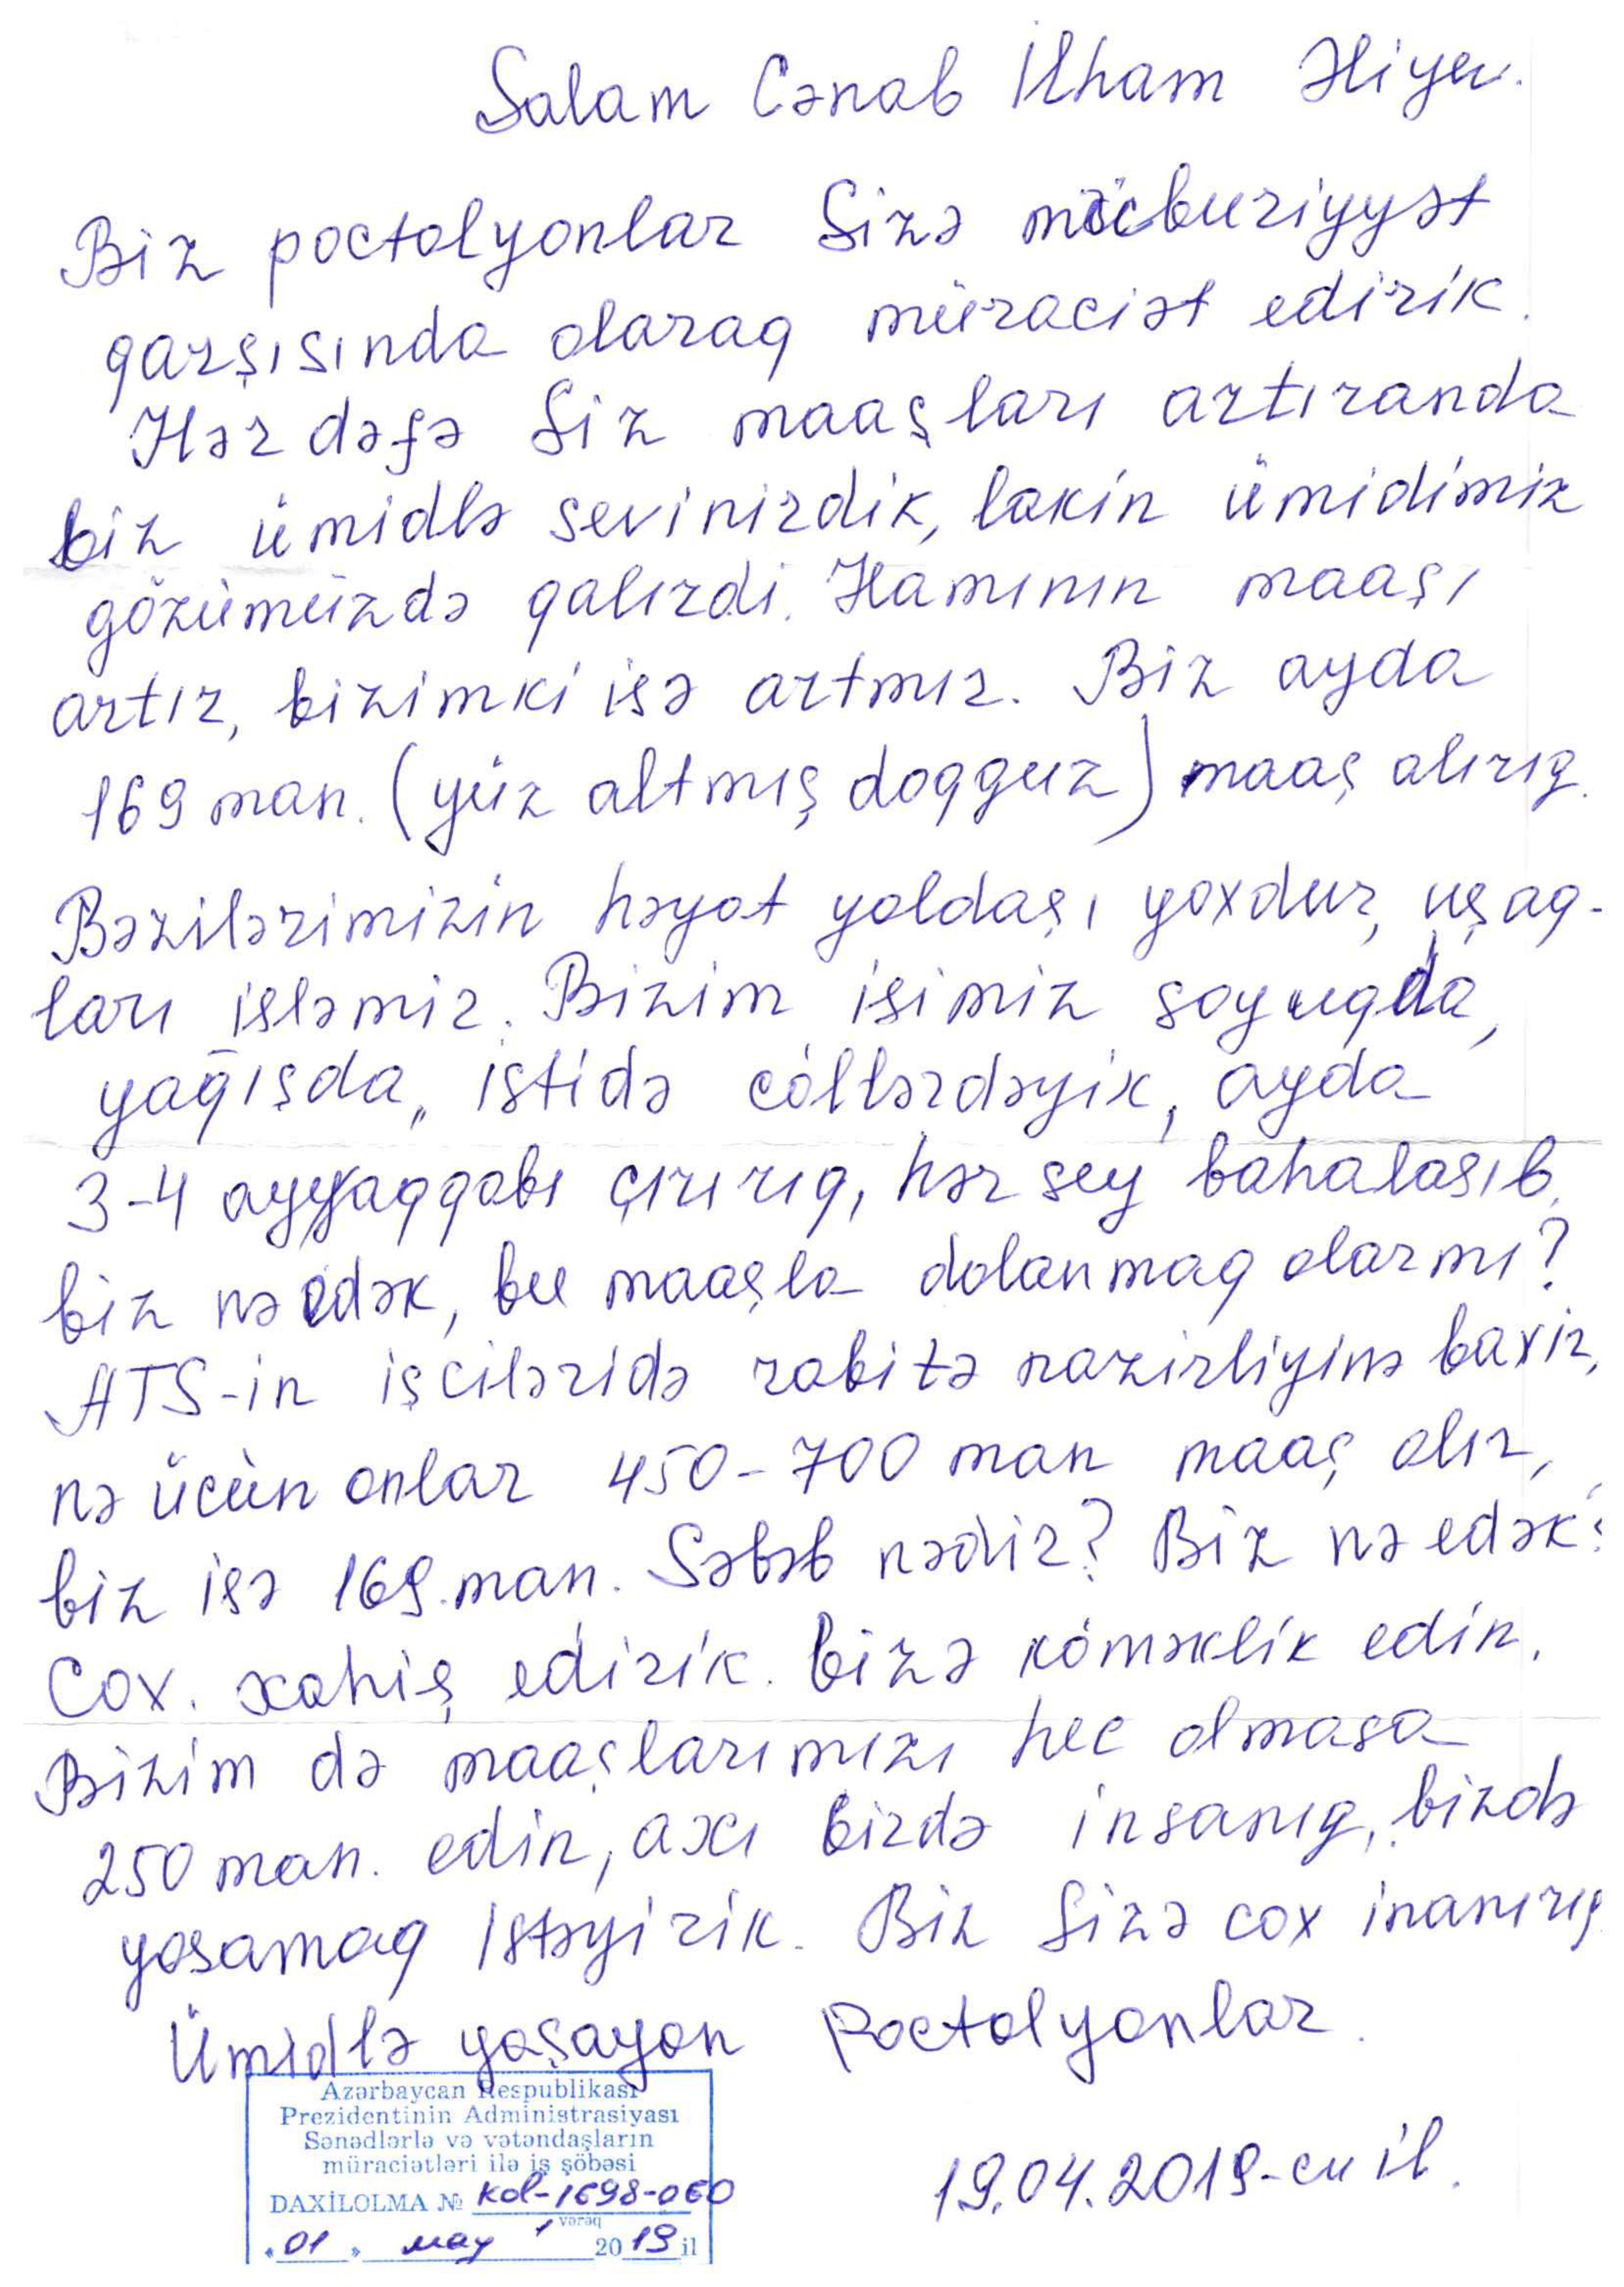 Salam Cənab İlham Əliyev.
Biz poctolyonlar Sizə məcburiyyət
qarşısında olaraq müraciət edirik.
Hər dəfə Siz maaşları artıranda
biz ümidlə sevinirdik, lakin ümidimiz
gözümüzdə qalırdi. Hamının maaşı
artır, bizimki isə artmır. Biz ayda
169 man. (yüz altmış doqquz) maaş alırıq.
Bəzilərimizin həyat yoldaşı yoxdur, uşaq-
ları işləmir. Bizim isimiz soyuqda,
yağışda, istidə cöllərdəyik, ayda
3-4 ayyaqqabı çırırıq, hər sey bahalasıb,
biz nə edək, bu maaşla dolanmaq olarmı?
ATS-in işciləridə rabitə nazirliyinə baxir,
nə ücün onlar 450-700 man maaş alır,
biz isə 169.man. Səbəb nədir? Biz nə edək?
Cox. xahiş edirik. bizə köməklik edin.
Bizim də maaşlarımızı hec olmasa
250 man. edin, axı bizdə insanıq, bizdə
yasamaq istəyirik. Biz Sizə cox inanırıq
Ümidlə yaşayan Poctolyonlar.
Azərbaycan Respublikası
Prezidentinin Administrasiyası
Sənədlərlə və vətəndaşların
müraciətləri ilə iş şöbəsi
DAXİLOLMA № Kol-1698-060
1 vərəq
"01" may 2019 il
19.04.2019-cu il.